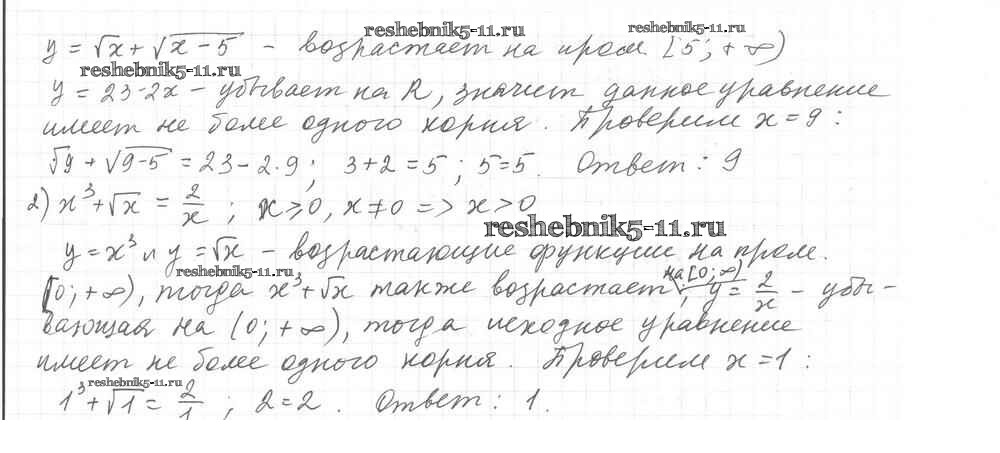 reshebnik5-11.ru reshebnik5-11.ru
y = √x + √(x-5) - возрастает на пром. [5; +∞)
reshebnik5-11.ru
y = 23-2x - убывает на R, значит данное уравнение
имеет не более одного корня. Проверим x=9:
√9 + √(9-5) = 23-2·9; 3+2=5; 5=5. Ответ: 9
2) x³+√x = 2/x; x≥0, x≠0 => x>0
reshebnik5-11.ru
y=x³ и y=√x - возрастающие функции на пром.
reshebnik5-11.ru
на [0; ∞)
[0; +∞), тогда x³+√x также возрастает; y = 2/x - убы-
вающая на (0; +∞), тогда исходное уравнение
имеет не более одного корня. Проверим x=1:
reshebnik5-11.ru
1³+√1 = 2/1; 2=2. Ответ: 1.